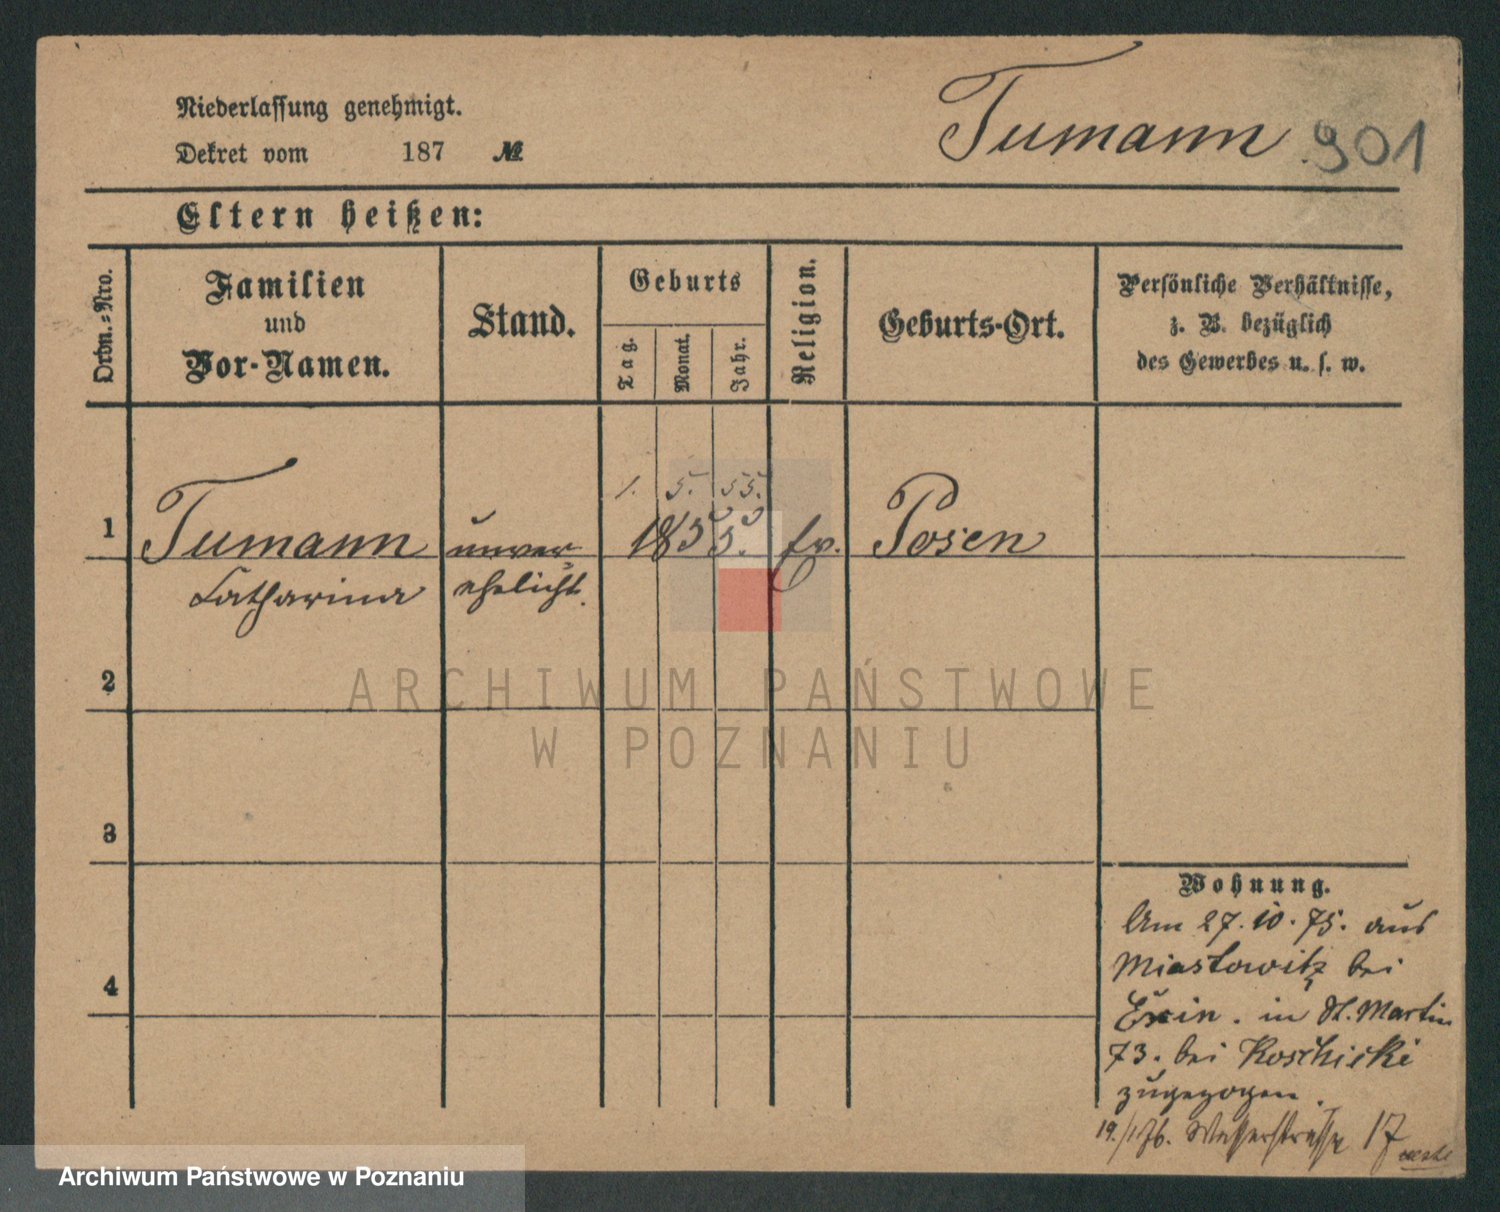 Niederlassung genehmigt.
Dekret vom 187 №
Tumann 901
Eltern heißen:
Ordn.-Nro.
Familien
und
Vor-Namen.
Stand.
Geburts
Tag.
Monat.
Jahr.
Religion.
Geburts-Ort.
Persönliche Verhältnisse,
z. B. bezüglich
des Gewerbes u. s. w.
1. 5. 55.
1 Tumann unver= 1855. ev. Posen
Catharina ehelicht.
2
3
4
Wohnung.
Am 27.10.75. aus
Miastowitz bei
Exin. in St. Martin
73. bei Koschicki
zugezogen.
19./1.76. Wasserstrasse 17
ARCHIWUM PAŃSTWOWE
W POZNANIU
Archiwum Państwowe w Poznaniu